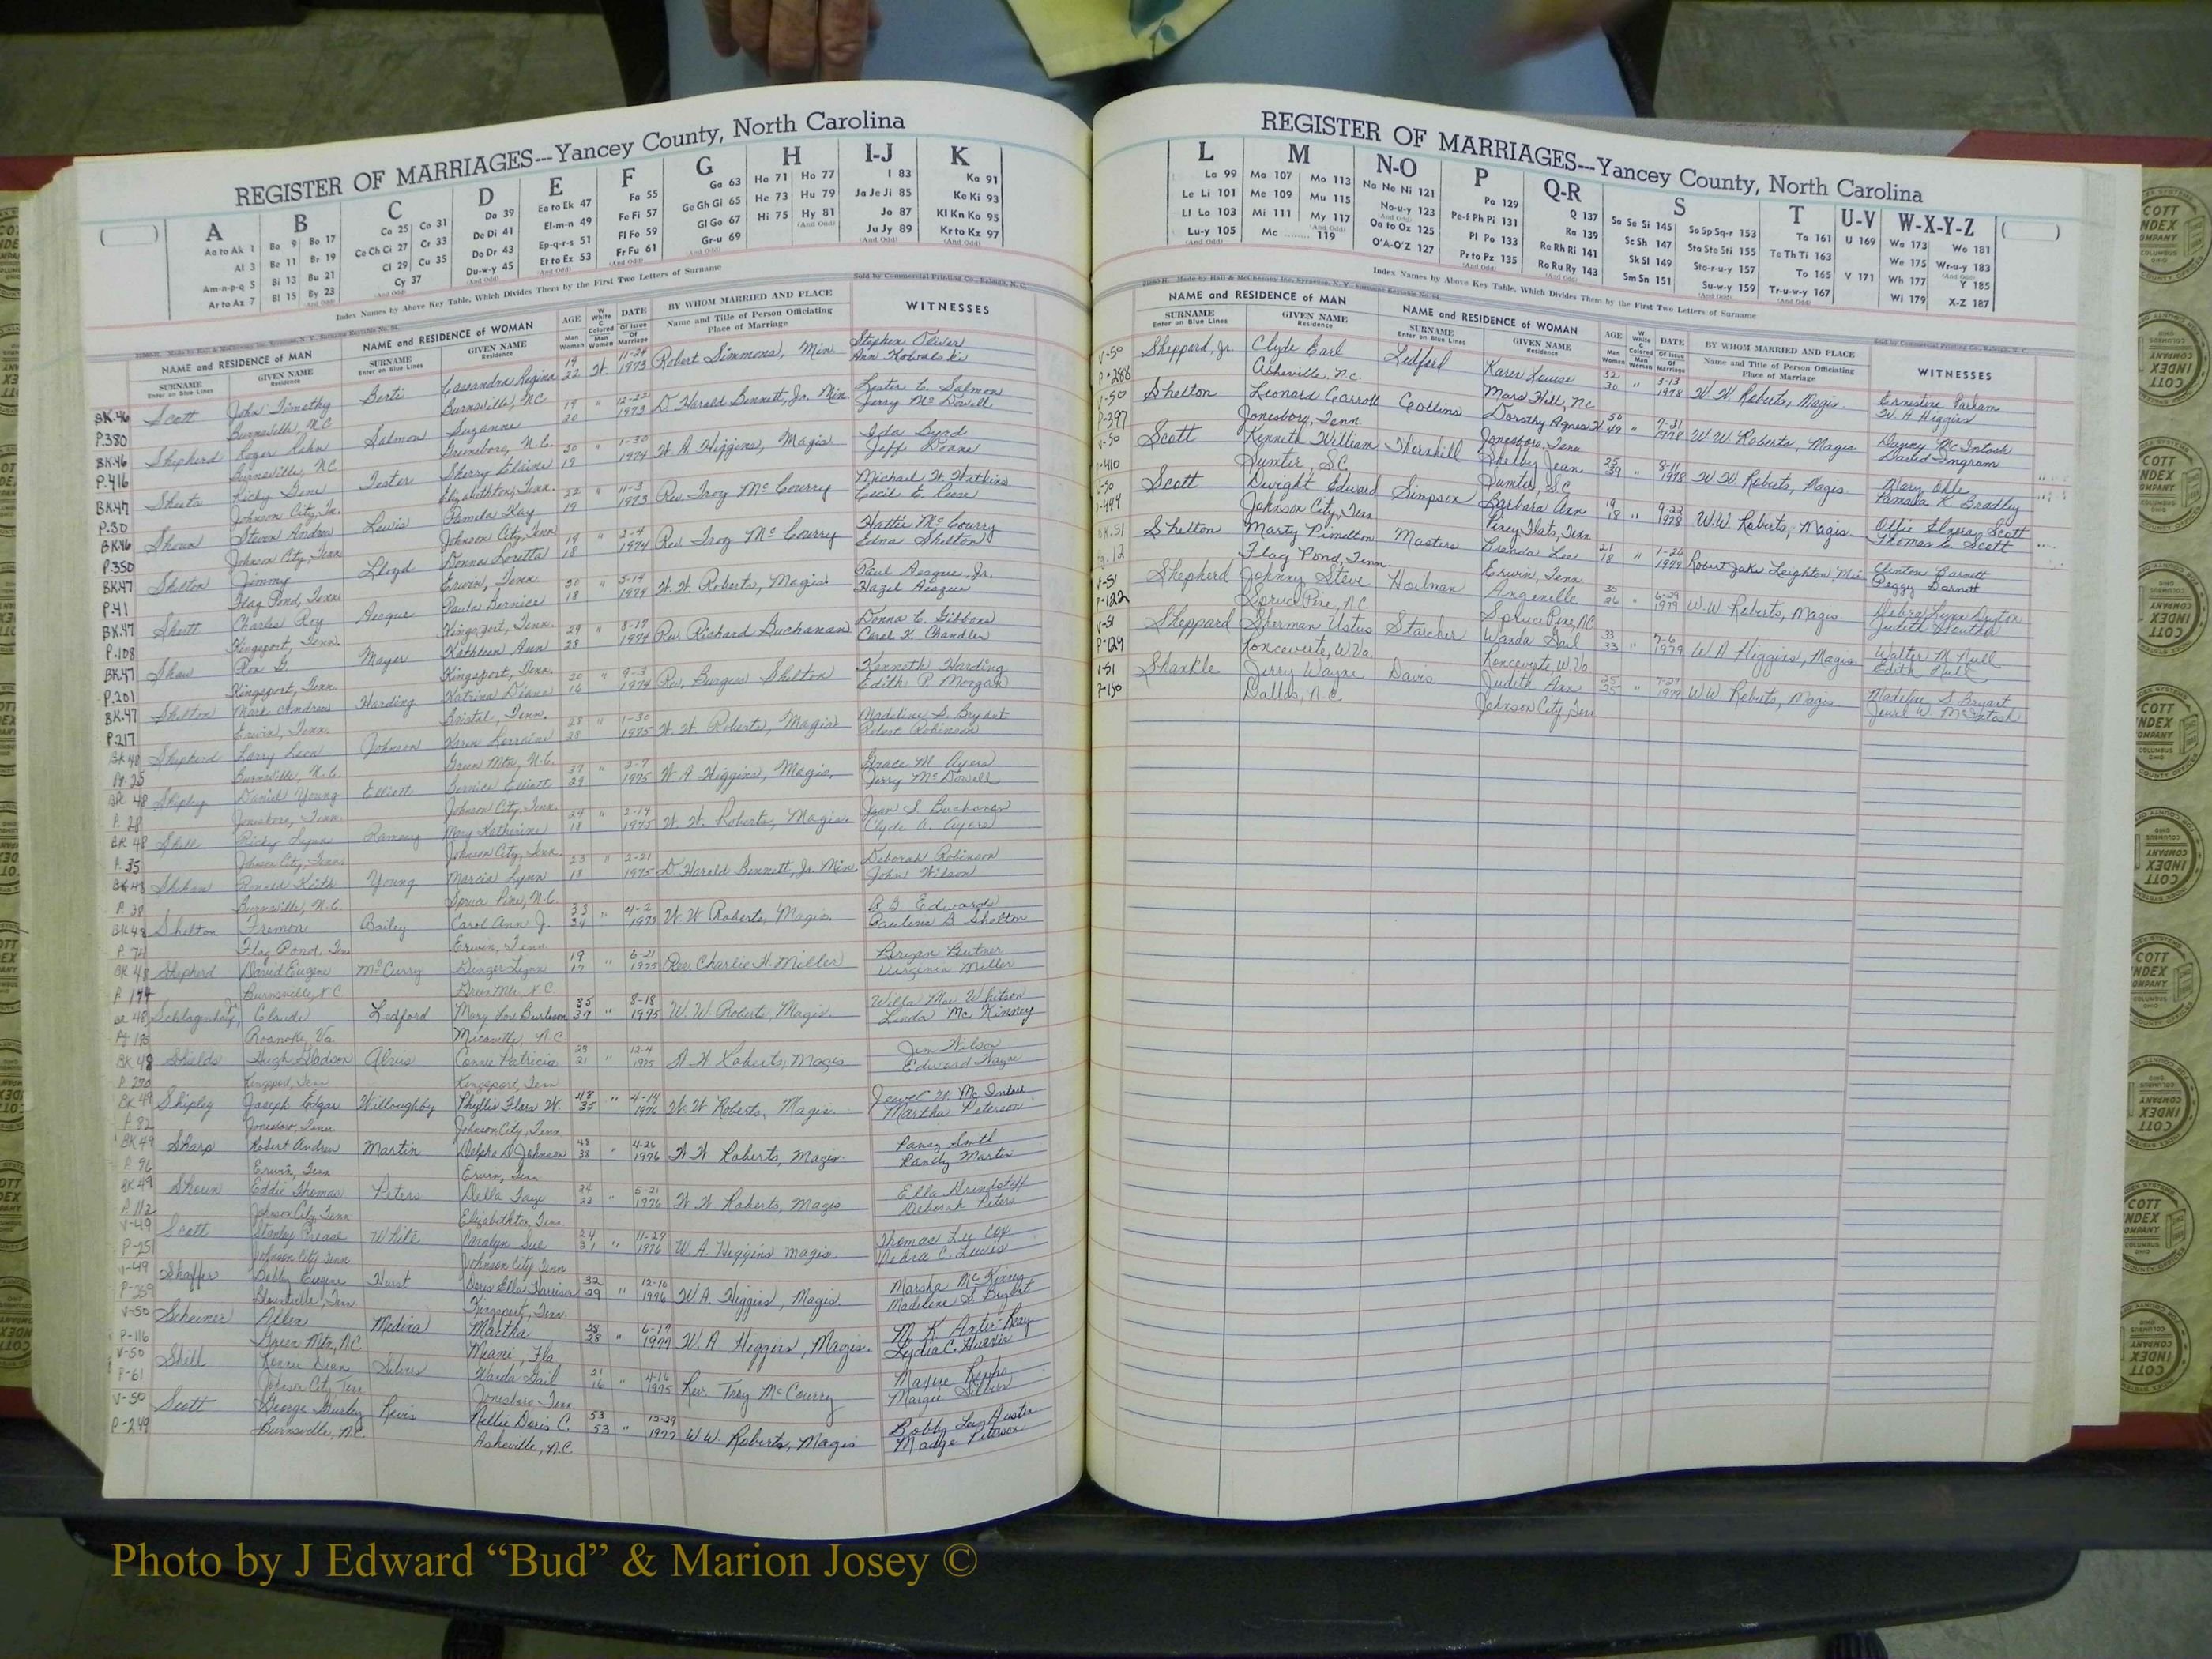 REGISTER OF MARRIAGES---Yancey County, North Carolina
A B C D E F G H I-J K
Aa to Ak 1 Ba 9 Bo 17 Ca 25 Co 31 Da 39 Ea to Ek 47 Fa 55 Ga 63 Ha 71 Ho 77 I 83 Ka 91
Al 3 Be 11 Br 19 Ce Ch Ci 27 Cr 33 De Di 41 El-m-n 49 Fe Fi 57 Ge Gh Gi 65 He 73 Hu 79 Ja Je Ji 85 Ke Ki 93
Am-n-p-q 5 Bi 13 Bu 21 Cl 29 Cu 35 Do Dr 43 Ep-q-r-s 51 Fl Fo 59 Gl Go 67 Hi 75 Hy 81 Jo 87 Kl Kn Ko 95
Ar to Az 7 Bl 15 By 23 Cy 37 Du-w-y 45 Et to Ez 53 Fr Fu 61 Gr-u 69 Ju Jy 89 Kr to Kz 97
Index Names by Above Key Table, Which Divides Them by the First Two Letters of Surname
Sold by Commercial Printing Co., Raleigh, N. C.
NAME and RESIDENCE of MAN NAME and RESIDENCE of WOMAN AGE DATE BY WHOM MARRIED AND PLACE WITNESSES
SURNAME GIVEN NAME SURNAME GIVEN NAME Name and Title of Person Officiating
Enter on Blue Lines Residence Enter on Blue Lines Residence Place of Marriage
Stephen Oliver
BK.46 Scott John Timothy Berti Cassandra Regina 19 22 W. 11-24 1973 Robert Simmons, Min. Ann Kowalski
P.380 Burnsville, NC Burnsville, NC Lester C. Salmon
BK.46 Shepherd Roger Rahn Salmon Suzanne 19 20 " 12-22 1973 D Harold Bennett, Jr. Min. Jerry McDowell
P.416 Burnsville, NC Greensboro, N.C. Ida Byrd
BK.47 Sheets Ricky Gene Tester Sherry Elaine 20 19 " 1-30 1974 W. A. Higgins, Magis. Jeff Doane
P.30 Johnson City, Tn. Elizabethton, Tenn. Michael W. Watkins
BK46 Shoun Steven Andrew Lewis Pamela Kay 22 19 " 11-3 1973 Rev. Troy McCourry Cecil E. Reese
P.350 Johnson City, Tenn Johnson City, Tenn Hattie McCourry
BK47 Shelton Jimmy Lloyd Donna Loretta 19 18 " 2-4 1974 Rev Troy McCourry Edna Shelton
P.41 Flag Pond, Tenn Erwin, Tenn. Paul Asque, Jr.
BK.47 Shortt Charles Roy Paula Bernice 20 18 " 5-14 1974 W. W. Roberts, Magis.
P.108 Kingsport, Tenn. Kingsport, Tenn. Donna C. Gibbons
BK.47 Shaw Ron G. Mayer Kathleen Ann 29 28 " 8-17 1974 Rev. Richard Buchanan Carol K. Chandler
P.201 Kingsport, Tenn. Kingsport, Tenn. Kenneth Harding
BK.47 Shelton Mark Andrew Harding Katrina Diane 20 16 " 9-3 1974 Rev. Burgess Shelton Edith P. Morgan
P.217 Erwin, Tenn. Bristol, Tenn. Madeline S. Bryant
BK 48 Shepherd Larry Leon Johnson Karen Lorraine 28 28 " 1-30 1975 W. W. Roberts, Magis Robert Robinson
Pg. 25 Burnsville, N.C. Green Mtn, N.C. Grace M Ayers
BK 48 Shipley Daniel Young Elliott Bernice Elliott 37 29 " 2-7 1975 W. A. Higgins, Magis. Jerry McDowell
P. 28 Jonesboro, Tenn. Johnson City, Tenn. Jean S Buchanan
BK 48 Shell Ricky Lynn Ramsey Mary Katherine 24 18 " 2-14 1975 W. W. Roberts, Magis. Clyde A. Ayers
P. 35 Johnson City, Tenn Johnson City, Tenn. Deborah Robinson
BK 48 Shehan Ronald Keith Young Marcia Lynn 23 18 " 2-21 1975 D Harold Bennett, Jr. Min. John Wilson
P. 38 Burnsville, N.C. Spruce Pine, N.C.
BK 48 Shelton Fremon Bailey Carol Ann J. 33 34 " 4-2 1975 W. W Roberts, Magis. Pauline B Shelton
P. 74 Flag Pond, Tenn Erwin, Tenn. Bryan Butner
BK 48 Shepherd David Eugene McCurry Ginger Lynn 19 17 " 6-21 1975 Rev. Charlie H. Miller Virginia Miller
P. 144 Burnsville, NC Green Mtn. NC Willa Mae Whitson
BK 48 Claude Ledford Mary Lou Burleson 35 37 " 8-18 1975 W. W. Roberts, Magis. Linda McKinney
Pg 195 Roanoke, Va. Micaville, N.C Jim Wilson
BK 48 Shields Hugh Alvis Connie Patricia 21 " 12-4 1975 W. W. Roberts, Magis Edward Wayne
P. 270 Kingsport, Tenn Kingsport, Tenn
BK 49 Shipley Joseph Edgar Willoughby Phyllis Flora W. 48 35 " 4-14 1976 W. W Roberts, Magis. Jewel W. McIntosh
P. 82 Jonesboro, Tenn. Johnson City, Tenn Martha Peterson
BK 49 Sharp Robert Andrew Martin Delpha D Johnson 43 38 " 4-26 1976 W. W Roberts, Magis. Pansy Smith
P. 96 Erwin, Tenn Erwin, Tenn Randy Martin
BK 49 Shoun Eddie Thomas Peters Della Faye 24 22 " 5-21 1976 W. W Roberts, Magis Ella Grindstaff
P. 112 Johnson City, Tenn Elizabethton, Tenn Deborah Peters
V-49 Scott Stanley White Carolyn Sue 24 31 " 11-29 1976 W. A. Higgins magis. Thomas Lee Cox
P-251 Johnson City Tenn Johnson City Tenn Debra C. Lewis
V-49 Shaffer Bobby Eugene Hurst Doris Ella Harrison 32 29 " 12-10 1976 W. A. Higgins, Magis. Marsha McKinney
P-259 Blountville, Tenn Kingsport, Tenn Madeline S Bryant
V-50 Scheiner Allen Medina Martha 28 28 " 6-17 1977 W. A Higgins, Magis.
P-116 Green Mtn, NC Miami, Fla
V-50 Shell Ronnie Dean Silvers Wanda Gail 21 16 " 4-16 1975 Rev. Troy McCourry
P-61 Johnson City, Tenn Jonesboro Tenn Margie Silvers
V-50 Scott George Gurley Revis Nellie Doris C. 53 53 " 12-29 1977 W W. Roberts, Magis Bobby Lee Austin
P-249 Burnsville, N.C. Asheville, N.C. Madge Peterson
REGISTER OF MARRIAGES---Yancey County, North Carolina
L M N-O P Q-R S T U-V W-X-Y-Z
La 99 Ma 107 Mo 113 Na Ne Ni 121 Pa 129 Q 137 Sa Se Si 145 So Sp Sq-r 153 Ta 161 U 169 Wa 173 Wo 181
Le Li 101 Me 109 Mu 115 No-u-y 123 Pe-f Ph Pi 131 Ra 139 Sc Sh 147 Sta Ste Sti 155 Te Th Ti 163 We 175 Wr-u-y 183
Ll Lo 103 Mi 111 My 117 Oa to Oz 125 Pl Po 133 Re Rh Ri 141 Sk Sl 149 Sto-r-u-y 157 To 165 V 171 Wh 177 Y 185
Lu-y 105 Mc 119 O'A-O'Z 127 Pr to Pz 135 Ro Ru Ry 143 Sm Sn 151 Su-w-y 159 Tr-u-w-y 167 Wi 179 X-Z 187
Index Names by Above Key Table, Which Divides Them by the First Two Letters of Surname
Sold by Commercial Printing Co., Raleigh, N. C.
NAME and RESIDENCE of MAN NAME and RESIDENCE of WOMAN AGE DATE BY WHOM MARRIED AND PLACE WITNESSES
SURNAME GIVEN NAME SURNAME GIVEN NAME Name and Title of Person Officiating
Enter on Blue Lines Residence Enter on Blue Lines Residence Place of Marriage
V-50 Sheppard, Jr. Clyde Earl Ledford Karen Louise 32 30 " 3-13 1978 W W Roberts, Magis. Ernestine Parham
P-288 Asheville, N.C. Mars Hill, NC W A Higgins
V-50 Shelton Leonard Carroll Collins Dorothy Agnes H 50 49 " 7-31 1978 W W. Roberts, Magis. Dagny McIntosh
P-397 Jonesboro, Tenn Jonesboro, Tenn David Ingram
V-50 Scott Kenneth William Thornhill Shelby Jean 25 39 " 8-11 1978 W W. Roberts, Magis.
P-410 Sumter, SC Sumter, SC Pamela K. Bradley
V-50 Scott Dwight Edward Simpson Barbara Ann 19 18 " 9-22 1978 W.W. Roberts, Magis. Ollie Scott
P-447 Johnson City, Tenn Piney Flats, Tenn Thomas C. Scott
BK.51 Shelton Marty Pimelton Masters Brenda Lee 21 18 " 1-26 1979 Robert Jake Leighton, Min Clinton Barnett
Pg. 12 Flag Pond, Tenn. Erwin, Tenn Peggy Barnett
V-51 Shepherd Johnny Steve Hoilman Angenelle 30 26 " 6-29 1979 W.W. Roberts, Magis. Debra Lynn Deyton
P-122 Spruce Pine, N.C. Spruce Pine, NC
V-51 Sheppard Sherman Ustus Starcher Wanda Gail 33 33 " 7-6 1979 W. A. Higgins, Magis. Walter M. Null
P-129 Ronceverte, W.Va. Ronceverte, W.Va Edith Null
V-51 Shankle Jerry Wayne Davis Judith Ann 25 25 " 7-27 1979 W W. Roberts, Magis Madeline S Bryant
P-150 Dallas, N.C. Johnson City, Tenn Jewel W. McIntosh
COTT
INDEX
COMPANY
COLUMBUS
OHIO
Photo by J Edward “Bud” & Marion Josey ©